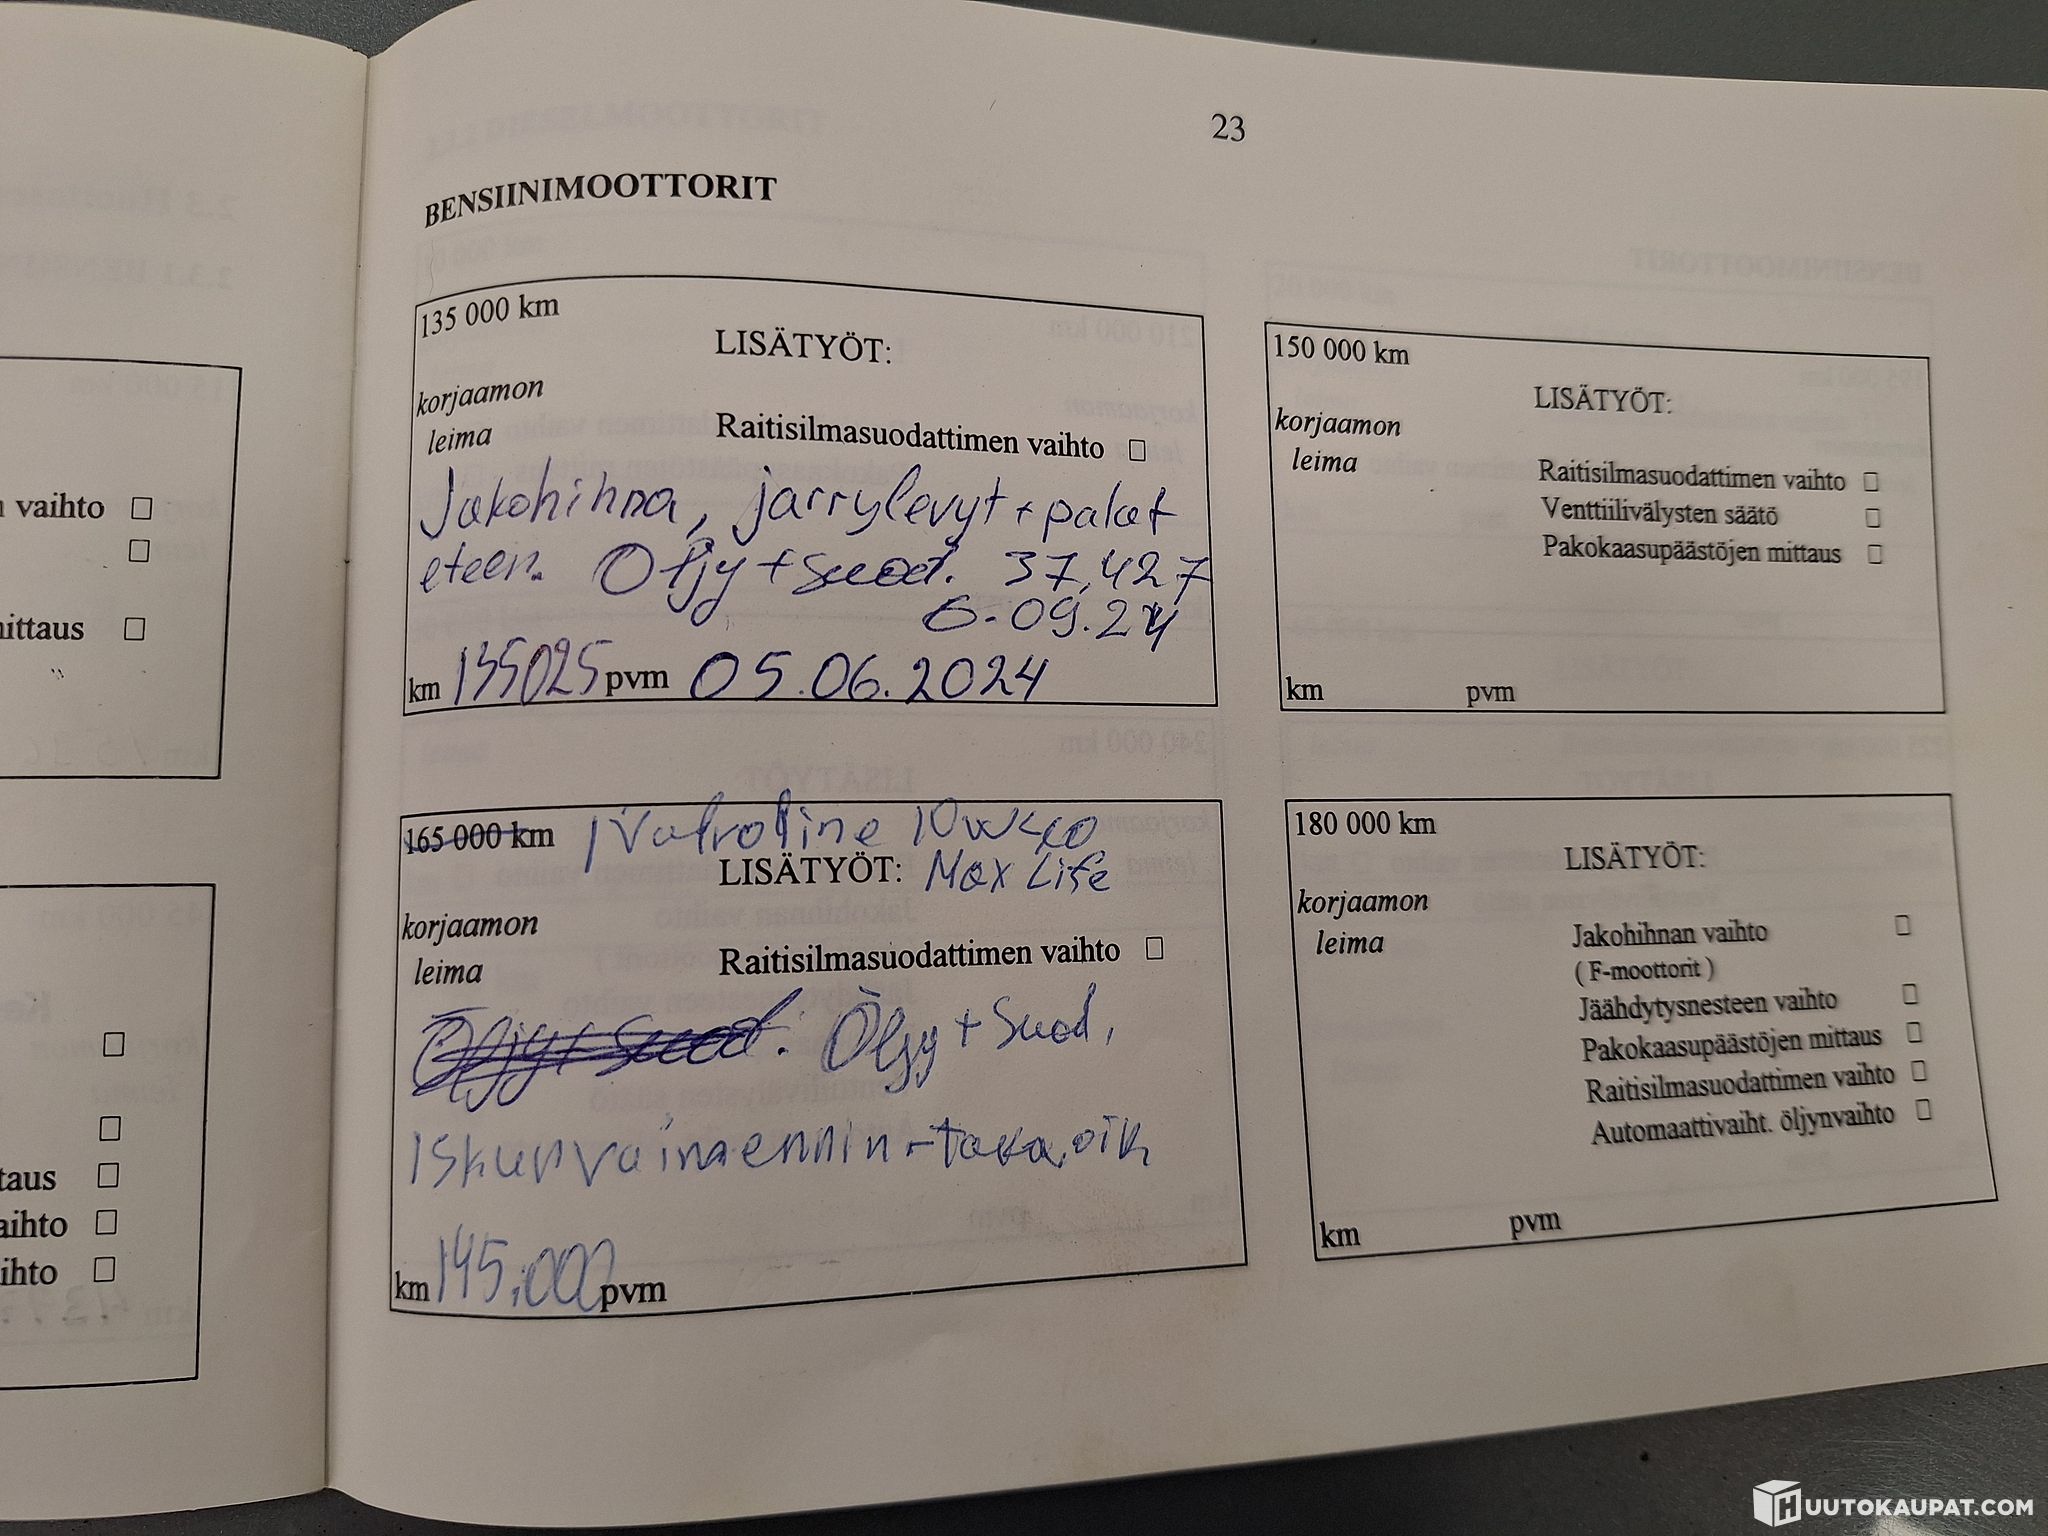 23
BENSIINIMOOTTORIT
n vaihto
mittaus
taus
aihto
ihto
135 000 km
LISÄTYÖT:
korjaamon
leima
Raitisilmasuodattimen vaihto
Jakohihna, jarrylevyt + palat
eteen. Öljy + suod. 37,427
6.09.24
km 135025 pvm 05.06.2024
150 000 km
LISÄTYÖT:
korjaamon
leima
Raitisilmasuodattimen vaihto
Venttiilivälysten säätö
Pakokaasupäästöjen mittaus
km pvm
165 000 km Valvoline 10w40
LISÄTYÖT: Max Life
korjaamon
leima
Raitisilmasuodattimen vaihto
Öljy + Suod. Öljy + Suod,
Iskunvaimennin taka.oik
km 145.000 pvm
180 000 km
LISÄTYÖT:
korjaamon
leima
Jakohihnan vaihto
( F-moottorit )
Jäähdytysnesteen vaihto
Pakokaasupäästöjen mittaus
Raitisilmasuodattimen vaihto
Automaattivaiht. öljynvaihto
km pvm
HUUTOKAUPAT.COM